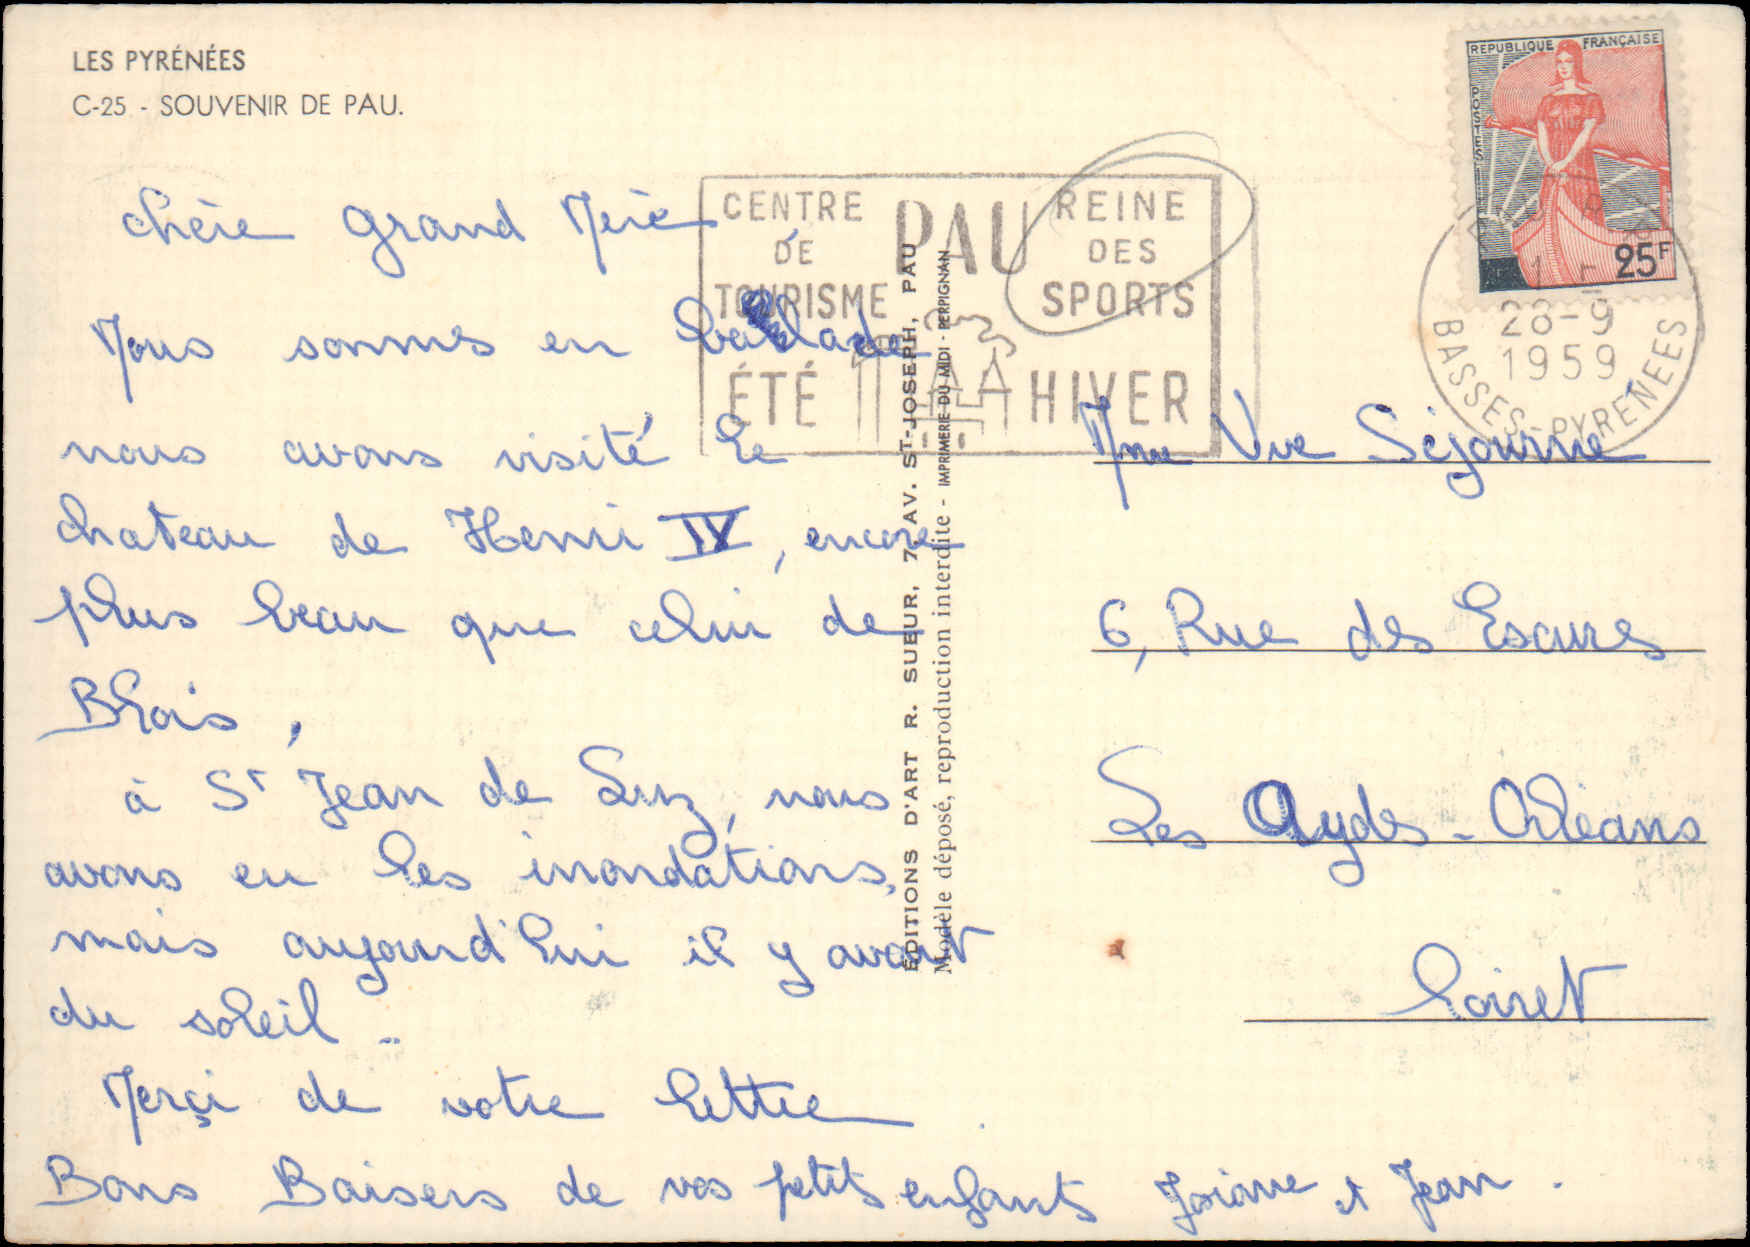 LES PYRÉNÉES
C-25 - SOUVENIR DE PAU.
REPUBLIQUE FRANÇAISE
POSTES
25F
CENTRE DE TOURISME
PAU
REINE DES SPORTS
ÉTÉ
HIVER
28-9
1959
BASSES-PYRENEES
chère grand Mère
Nous sommes en ballade
nous avons visité le
chateau de Henri IV, encore
plus beau que celui de
Blois,
à St Jean de Luz, nous
avons eu les inondations,
mais aujourd'hui il y avait
du soleil..
Merçi de votre lettre.
Bons Baisers de vos petits enfants Josiane et Jean.
EDITIONS D'ART R. SUEUR, 7, AV. ST-JOSEPH, PAU
Modèle déposé, reproduction interdite - IMPRIMERIE DU MIDI - PERPIGNAN
Mme Vve Séjourné
6, Rue des Escures
Les Aydes - Orléans
Loiret